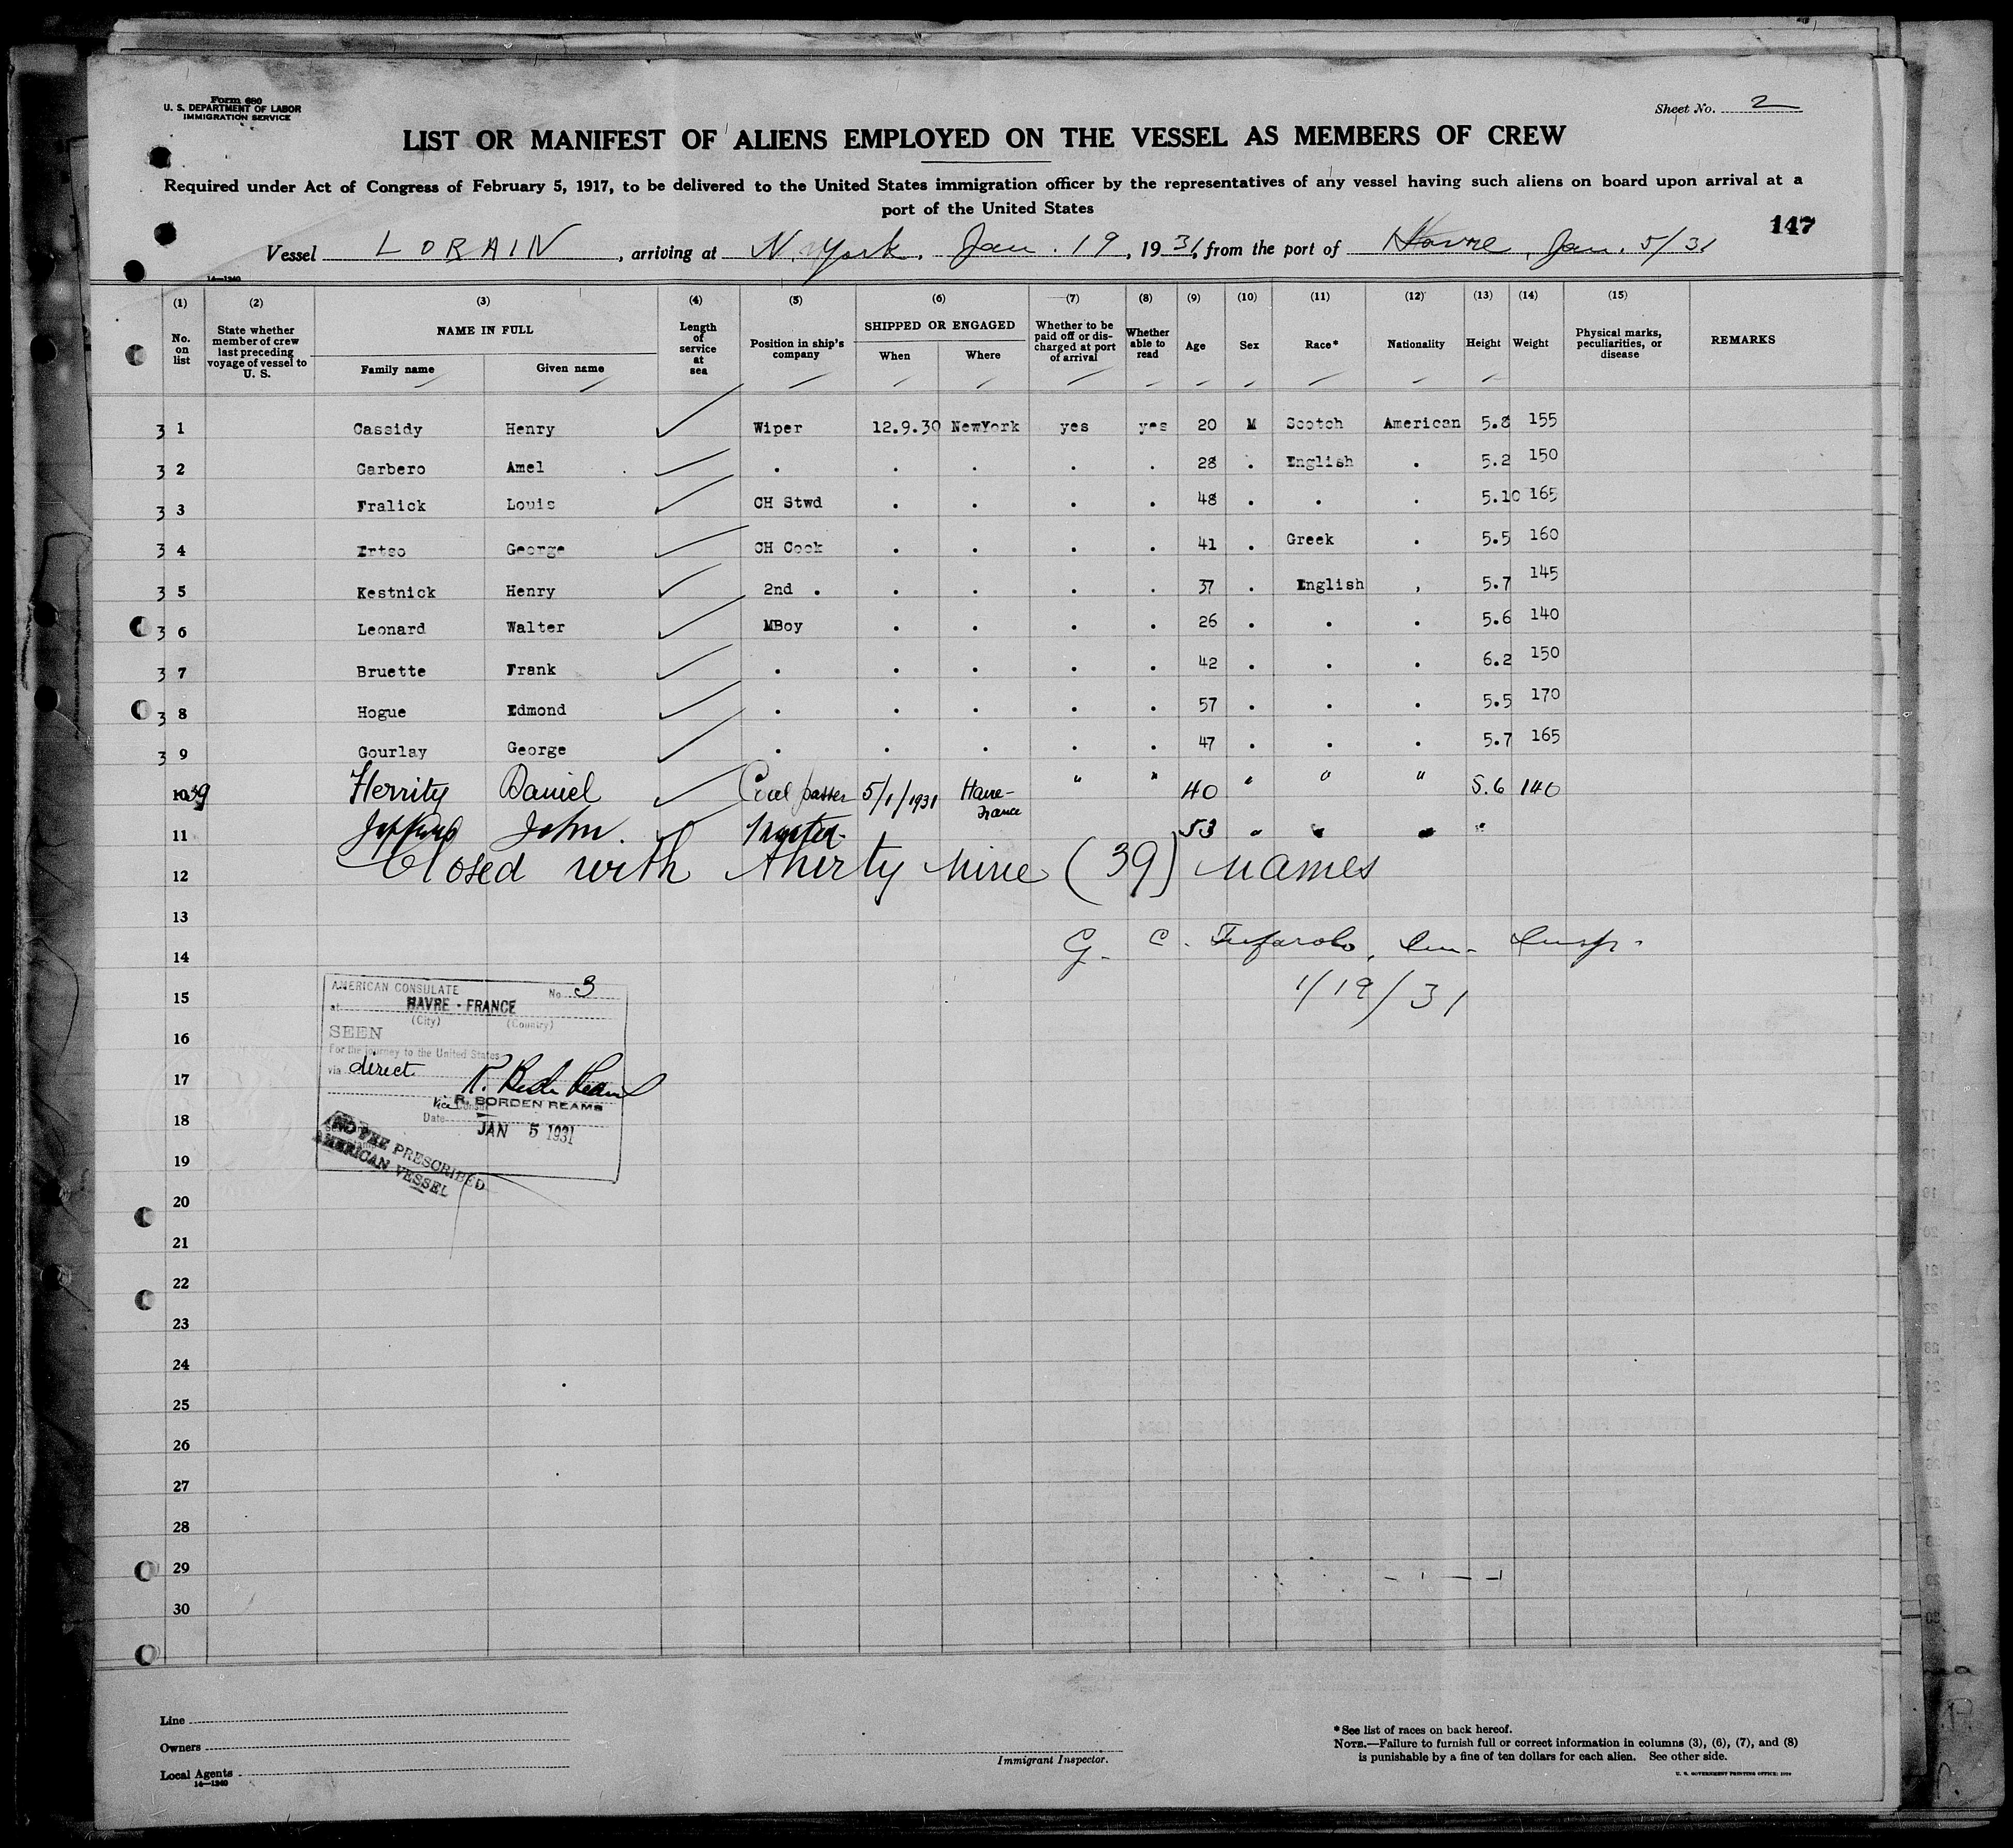 Form 680
U. S. DEPARTMENT OF LABOR
IMMIGRATION SERVICE
Sheet No. 2
LIST OR MANIFEST OF ALIENS EMPLOYED ON THE VESSEL AS MEMBERS OF CREW
Required under Act of Congress of February 5, 1917, to be delivered to the United States immigration officer by the representatives of any vessel having such aliens on board upon arrival at a
port of the United States
147
Vessel LORAIN, arriving at N. York, Jan. 19, 1931, from the port of Havre, Jan. 5/31
14—1240
(1) (2) (3) (4) (5) (6) (7) (8) (9) (10) (11) (12) (13) (14) (15)
No. on list State whether member of crew last preceding voyage of vessel to U. S. NAME IN FULL Family name Given name Length of service at sea Position in ship's company SHIPPED OR ENGAGED When Where Whether to be paid off or discharged at port of arrival Whether able to read Age Sex Race* Nationality Height Weight Physical marks, peculiarities, or disease REMARKS
3 1 Cassidy Henry Wiper 12.9.30 NewYork yes yes 20 M Scotch American 5.8 155
3 2 Garbero Amel . . . . . 28 . English . 5.2 150
3 3 Fralick Louis CH Stwd . . . . 48 . . . 5.10 165
3 4 Irtso George CH Cook . . . . 41 . Greek . 5.5 160
3 5 Kestnick Henry 2nd . . . . . 37 . English , 5.7 145
3 6 Leonard Walter MBoy . . . . 26 . . . 5.6 140
3 7 Bruette Frank . . . . . 42 . . . 6.2 150
3 8 Hogue Edmond . . . . . 57 . . . 5.5 170
3 9 Gourlay George . . . . . 47 . . . 5.7 165
10 39 Herrity Daniel Coal passer 5/1/1931 Havre-France " " 40 " " " 5.6 140
11 John. Master 53 " " " "
12 Closed with thirty nine (39) names
13
14 G. C. Imm. Insp.
15 1/19/31
16
17
18
19
20
21
22
23
24
25
26
27
28
29
30
AMERICAN CONSULATE No. 3
at HAVRE - FRANCE
(City) (Country)
SEEN
For the journey to the United States
via direct
R. Borden Reams
R. BORDEN REAMS
Vice Consul
Date JAN 5 1931
NO FEE PRESCRIBED
AMERICAN VESSEL
Line
Owners
Local Agents
14—1240
Immigrant Inspector.
* See list of races on back hereof.
NOTE.—Failure to furnish full or correct information in columns (3), (6), (7), and (8)
is punishable by a fine of ten dollars for each alien. See other side.
U. S. GOVERNMENT PRINTING OFFICE: